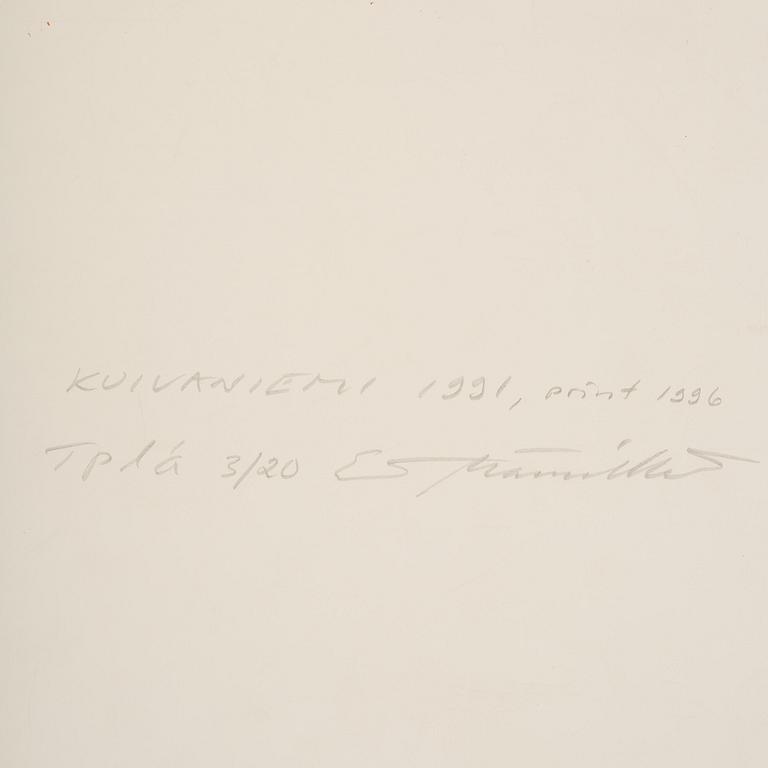 KUIVANIEMI 1991, print 1996
Tplá 3/20